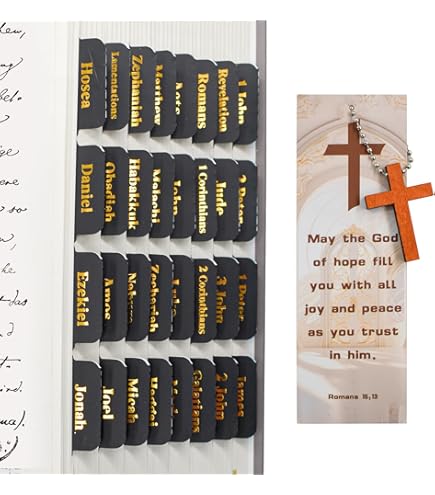 Hosea
Lamentations
Zephaniah
Matthew
Acts
Romans
Revelation
1 John
Daniel
Obadiah
Habakkuk
Malachi
John
1 Corinthians
Jude
2 Peter
Ezekiel
Amos
Nahum
Zechariah
Luke
2 Corinthians
3 John
1 Peter
Jonah
Joel
Micah
Haggai
Galatians
2 John
James
May the God
of hope fill
you with all
joy and peace
as you trust
in him.
Romans 15,13